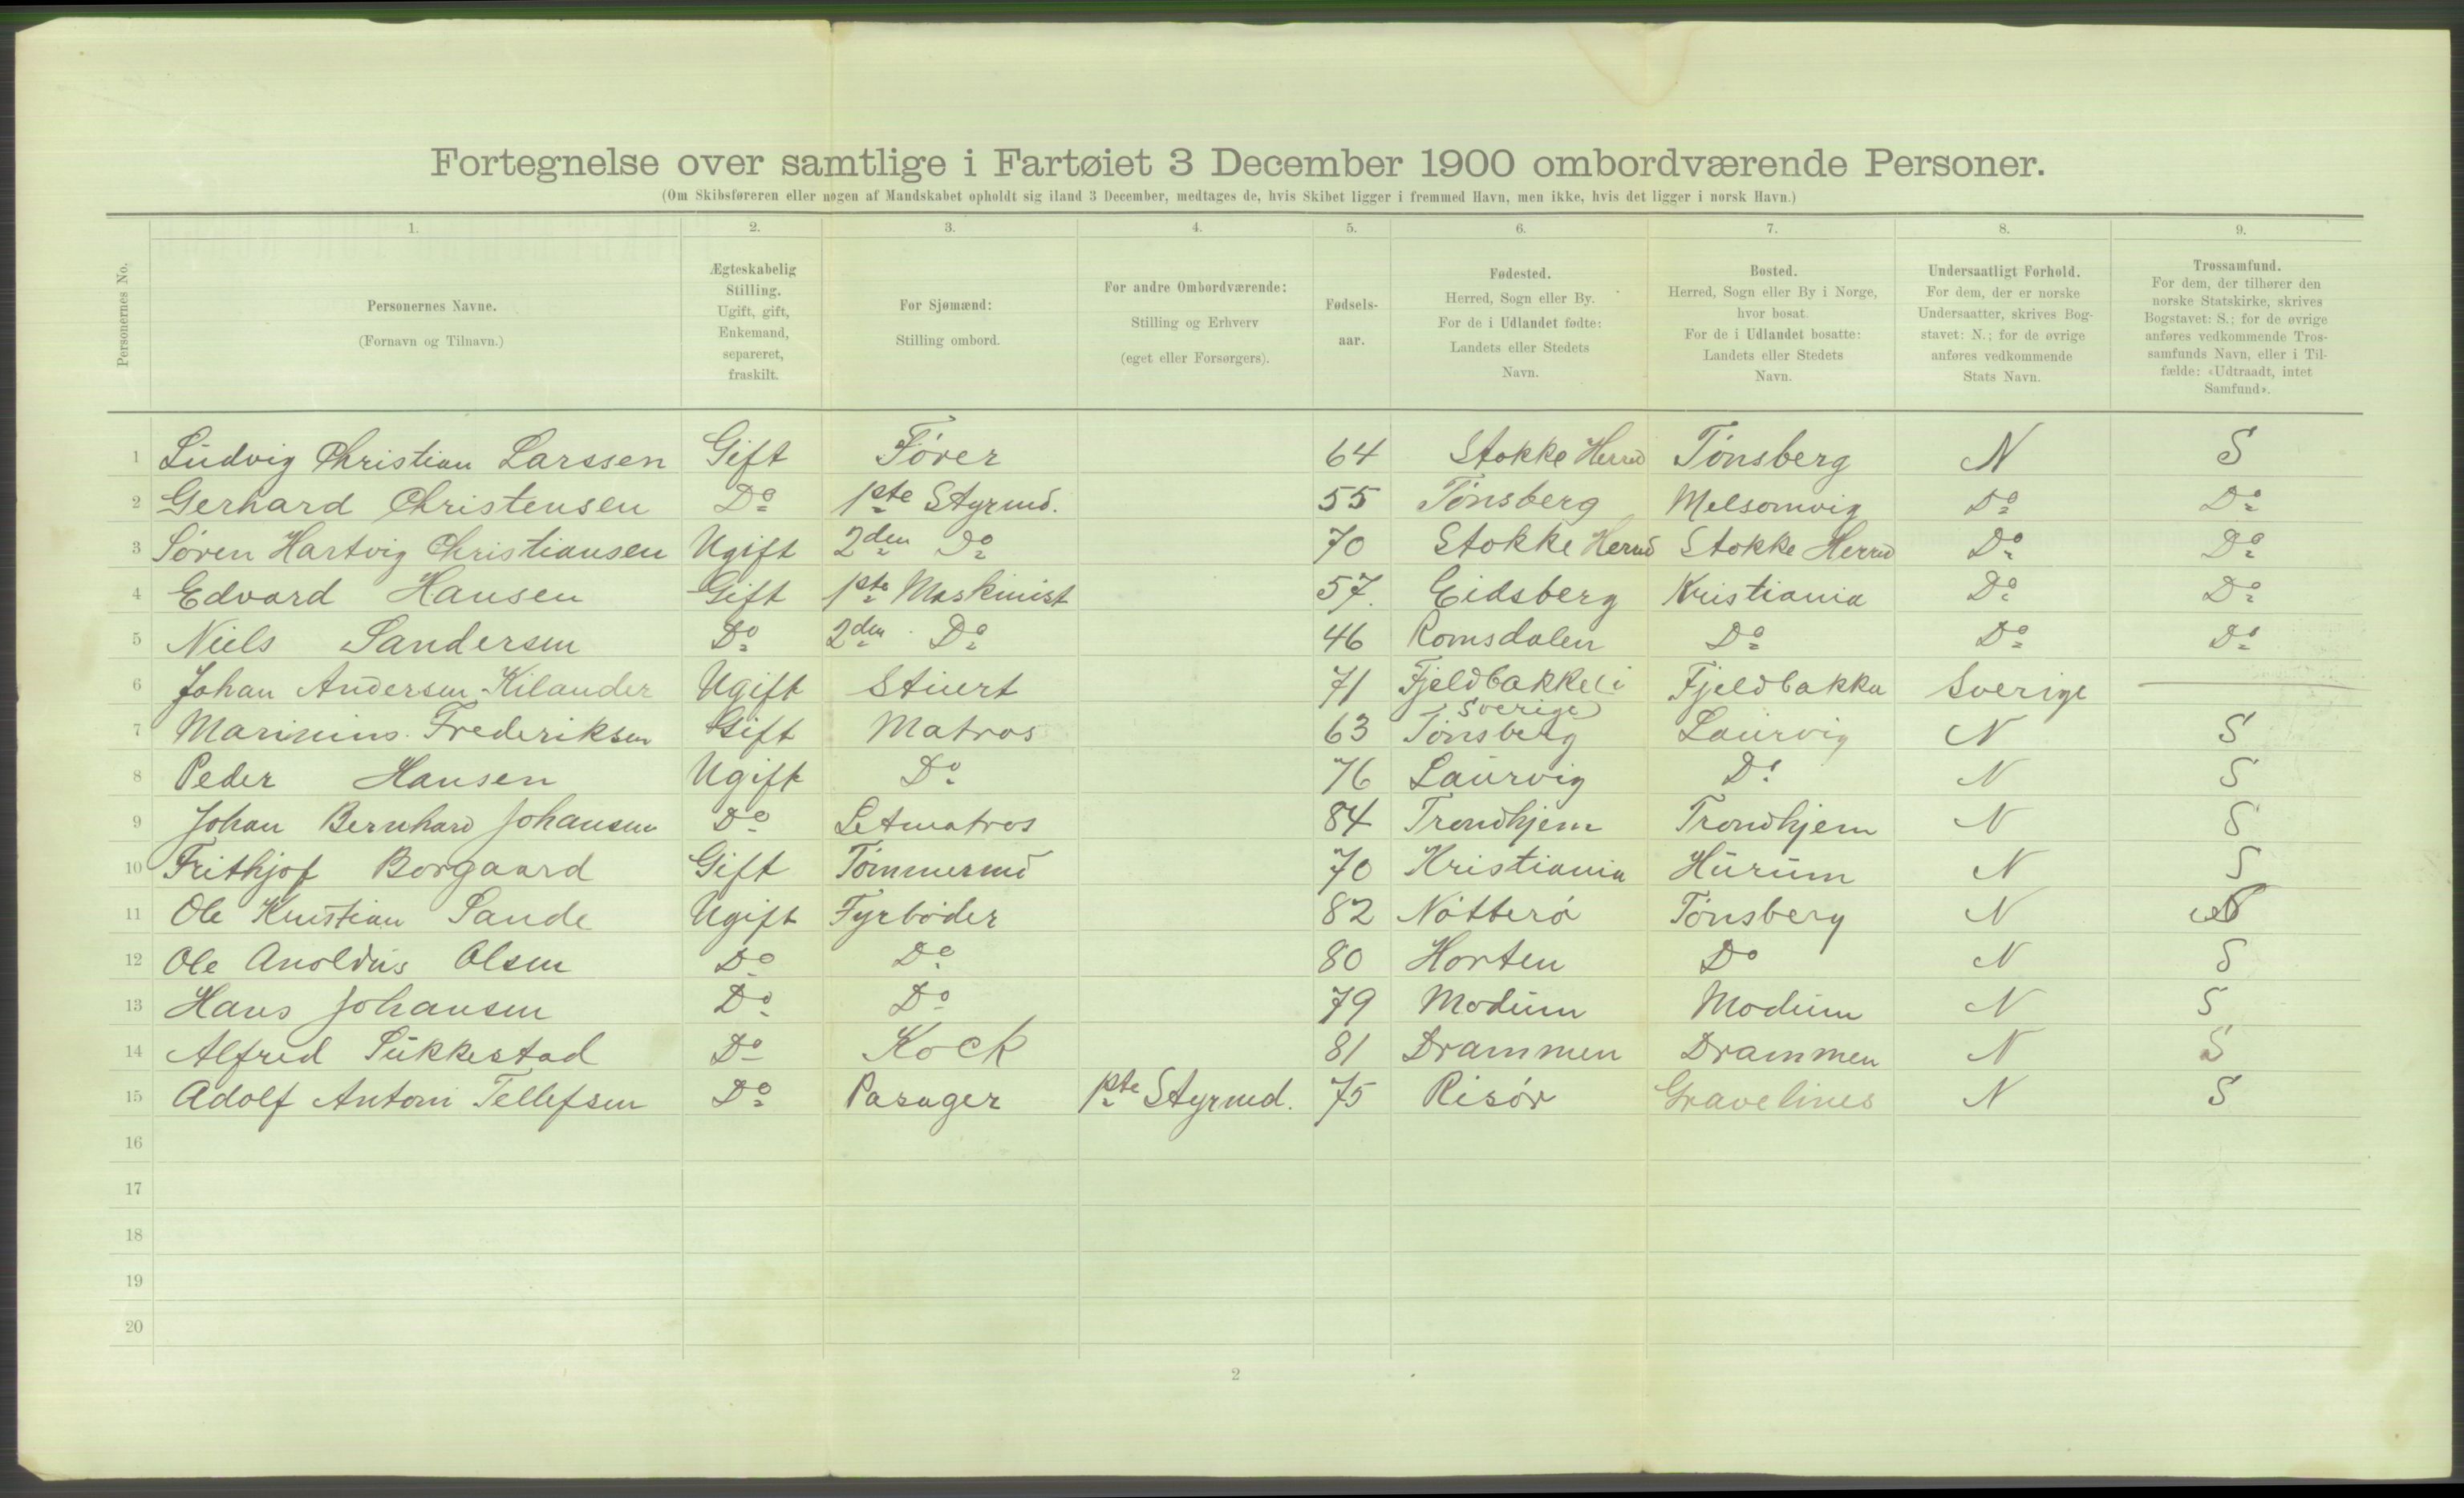 Fortegnelse over samtlige i Fartøiet 3 December 1900 ombordværende Personer.
(Om Skibsføreren eller nogen af Mandskabet opholdt sig iland 3 December, medtages de, hvis Skibet ligger i fremmed Havn, men ikke, hvis det ligger i norsk Havn.)
Personernes No.
1. 2. 3. 4. 5. 6. 7. 8. 9.
Personernes Navne.
(Fornavn og Tilnavn.)
Ægteskabelig
Stilling.
Ugift, gift,
Enkemand,
separeret,
fraskilt.
For Sjømænd:
Stilling ombord.
For andre Ombordværende:
Stilling og Erhverv
(eget eller Forsørgers).
Fødsels-
aar.
Fødested.
Herred, Sogn eller By.
For de i Udlandet fødte:
Landets eller Stedets
Navn.
Bosted.
Herred, Sogn eller By i Norge,
hvor bosat.
For de i Udlandet bosatte:
Landets eller Stedets
Navn.
Undersaatligt Forhold.
For dem, der er norske
Undersaatter, skrives Bog-
stavet: N.; for de øvrige
anføres vedkommende
Stats Navn.
Trossamfund.
For dem, der tilhører den
norske Statskirke, skrives
Bogstavet: S.; for de øvrige
anføres vedkommende Tros-
samfunds Navn, eller i Til-
fælde: «Udtraadt, intet
Samfund».
1 Ludvig Christian Larssen Gift Fører 64 Stokke Herred Tønsberg N S
2 Gerhard Christensen Do 1ste Styrmd. 55 Tønsberg Melsomvig Do Do
3 Søren Hartvig Christiansen Ugift 2den Do 70 Stokke Herred Stokke Herred Do Do
4 Edvard Hansen Gift 1ste Maskinist 57. Eidsberg Kristiania Do Do
5 Niels Sandersen Do 2den Do 46 Romsdalen Do Do Do
6 Johan Andersen Kilander Ugift Stiuert 71 Fjeldbakke (i Fjeldbakka Sverige —
Sverige)
7 Marinius Frederiksen Gift Matros 63 Tønsberg Laurvig N S
8 Peder Hansen Ugift Do 76 Laurvig Do N S
9 Johan Bernhard Johansen Do Letmatros 84 Trondhjem Trondhjem N S
10 Frithjof Borgaard Gift Tømmermd 70 Kristiania Hurum N S
11 Ole Kristian Sande Ugift Fyrbøder 82 Nøtterø Tønsberg N
12 Ole Anoldus Olsen Do Do 80 Horten Do N S
13 Hans Johansen Do Do 79 Modum Modum N S
14 Alfred Sukkestad Do Kock 81 Drammen Drammen N S
15 Adolf Antoni Tellefsen Do Pasager 1ste Styrmd. 75 Risør Gravelines N S
16
17
18
19
20
2